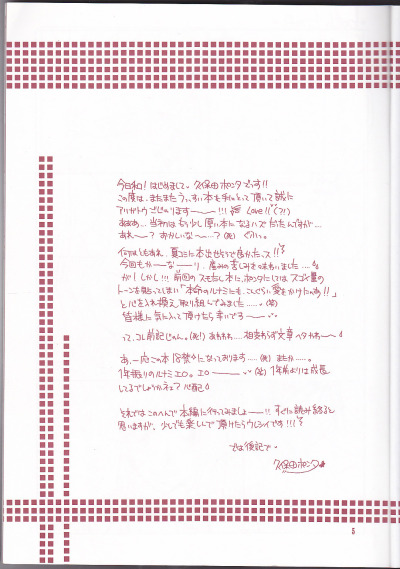 今日和!はじめまして。久保田ホンタでっす!!
この度は、またまたうっすい本を手にとって頂いて誠に
アリガトウございますーー!!! 超 Love!!(?!)
あああ…当初はもう少し厚い本になるハズだったんですが…
あれー?おかしいなー…?(死) ぐふっ。
何はともあれ、夏コミに本出せそうで良かったっス!!
今回もかーなーり、産みの苦しみを味わいました…
が!しかし!!! 前回のスモもし本に、ホンタにしてはスゴイ量の
トーンを貼ってしまい「本命のルナミにも、こんくらい愛をかけたいのよ!!」
と心を入れ換え、取り組んでみました……。(笑)
皆様に気に入って頂けたら幸いですー
って、コレ前記じゃん。(死!) あわわわ……相変わらず文章ヘタねー
あ、一応この本18禁になっております……(死) またか……。
1年振りのルナミエロ。エローー (笑) 1年前よりは成長
してるでしょうかネェ?心配
それではこのへんで本編に行ってみましょー!! すぐに読み終ると
思いますが、少しでも楽しんで頂けたらウレシイです!!!
では後記で。
久保田ホンタ
5